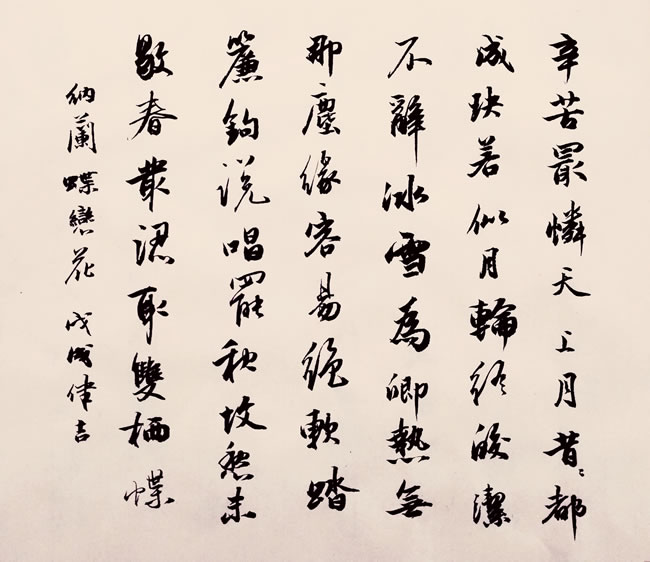 辛苦最憐天上月昔〻都
成玦若似月輪終皎潔
不辭冰雪為卿熱無
那塵緣容易絕軟踏
簾鈎說唱罷秋墳愁未
歇春叢認取雙栖蝶
納蘭蝶戀花 戊戌吉